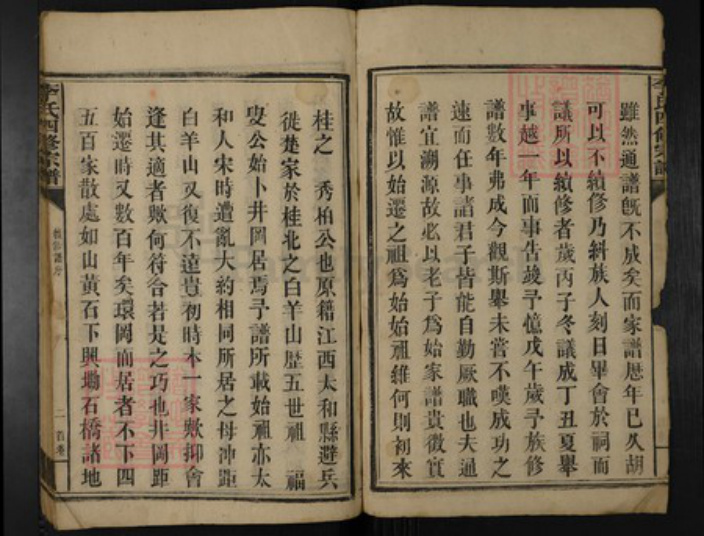 雖然通譜旣不成矣而家譜歴年已久胡
可以不續修乃糾族人刻日畢會於祠而
議所以續修者歲丙子冬議成丁丑夏舉
事越一年而事告竣予憶戊午歲予族修
譜數年弗成今觀斯舉未嘗不嘆成功之
速而任事諸君子皆能自勤厥職也夫通
譜宜溯源故必以老子爲始家譜貴徵實
故惟以始遷之祖爲始始祖維何則初來
李氏四修宗譜
桂之 秀柏公也原籍江西太和縣避兵
徙楚家於桂北之白羊山歴五世祖 福
叟公始卜井岡居焉予譜所載始祖亦太
和人宋時遭亂大約相同所居之毋冲距
白羊山又復不遠豈初時本一家歟抑會
逢其適者歟何符合若是之巧也井岡距
始遷時又數百年矣環岡而居者不下四
五百家散處如山黃石下興塘石橋諸地
李氏四修宗譜
二 首卷